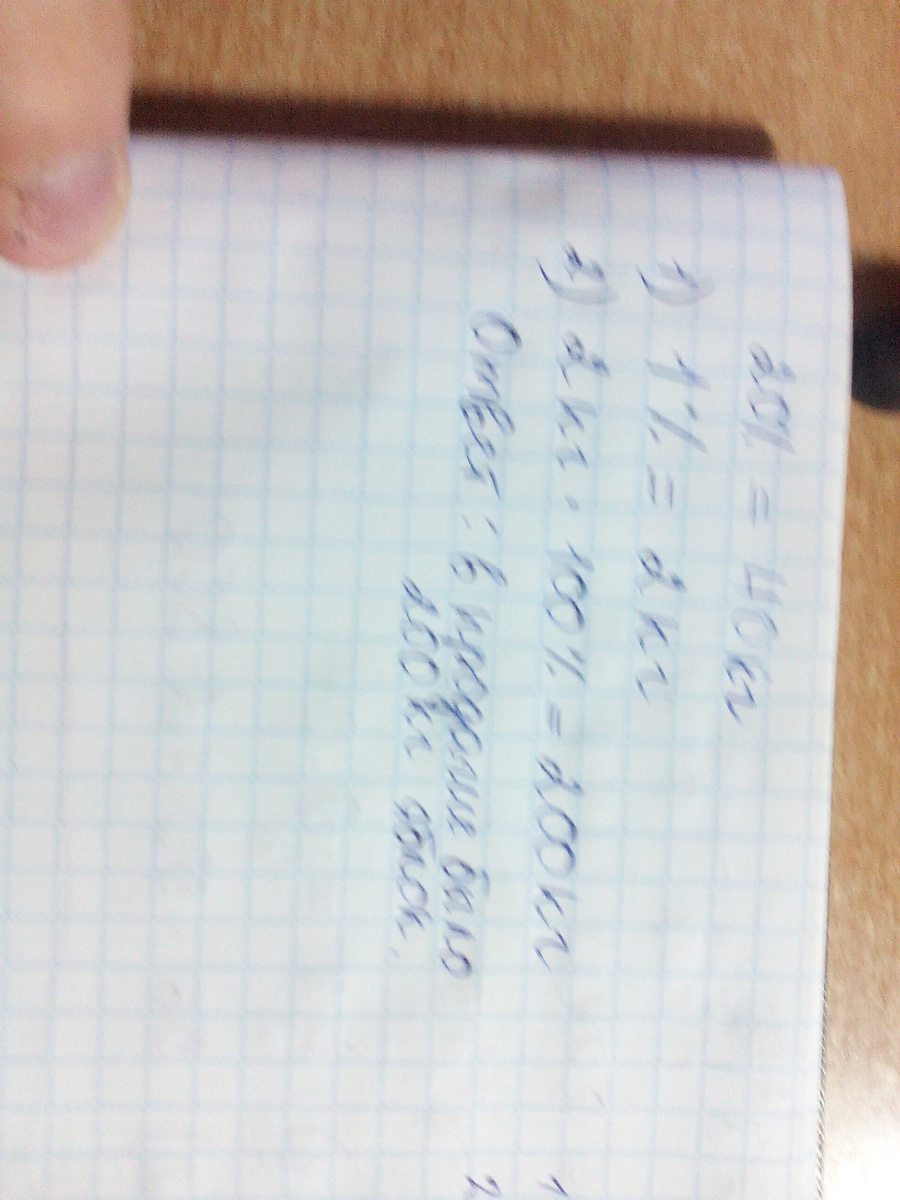 20% = 40кг
1) 1% = 2кг
2) 2кг · 100% = 200кг
Ответ: в продаже было
200кг яблок.
1
2